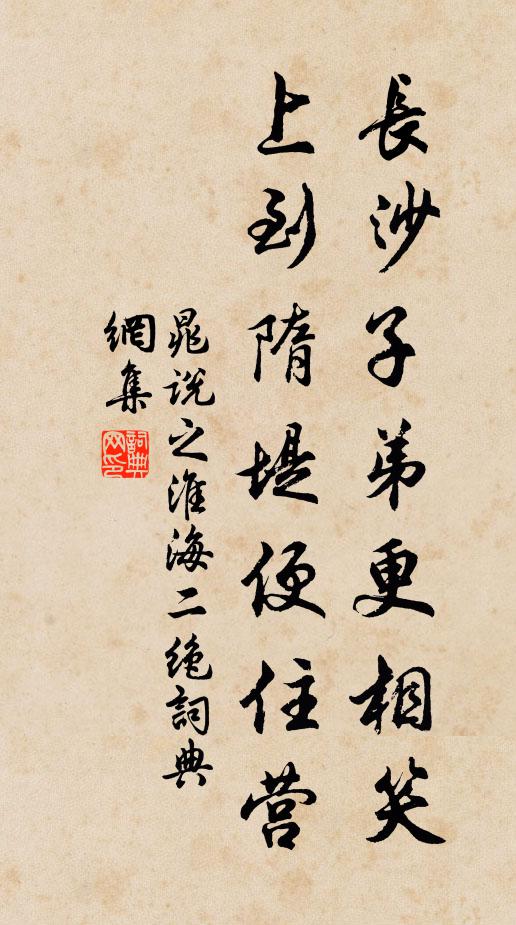 長沙子弟更相笑
上到隋堤便住营
晁説之淮海二绝詞典
網集
詞典网印